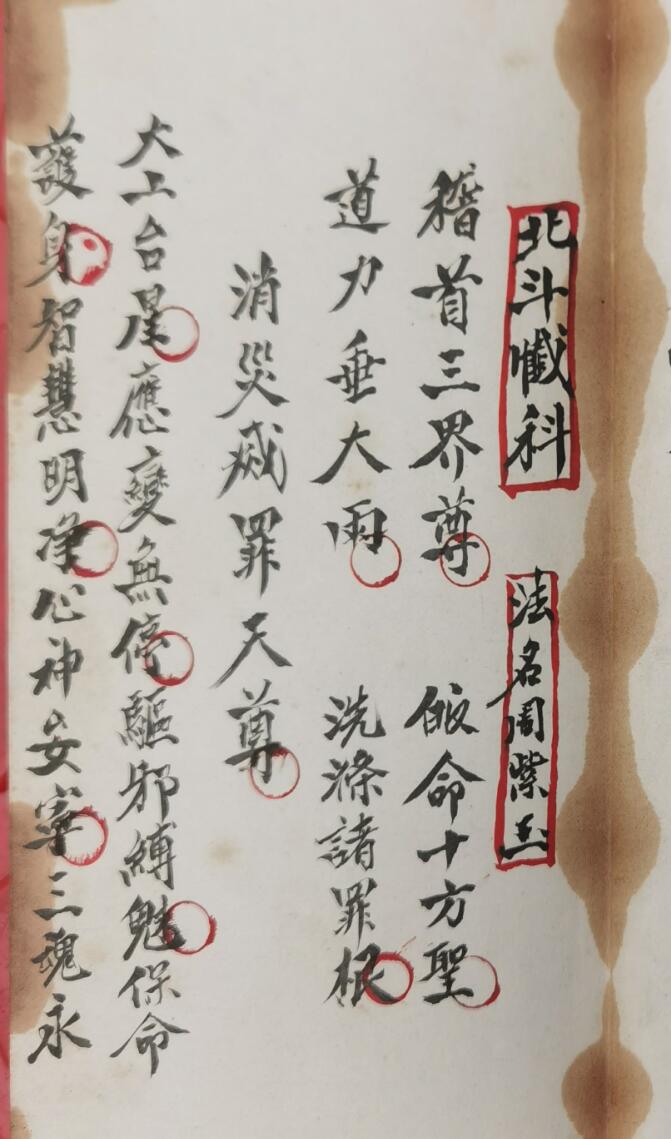 北斗懺科 法名周紫玉
稽首三界尊 皈命十方聖
道力垂大雨 洗滌諸罪根
消災滅罪天尊
大上台星應變無停驅邪縛魅保命
護身智慧明淨心神安寧三魂永